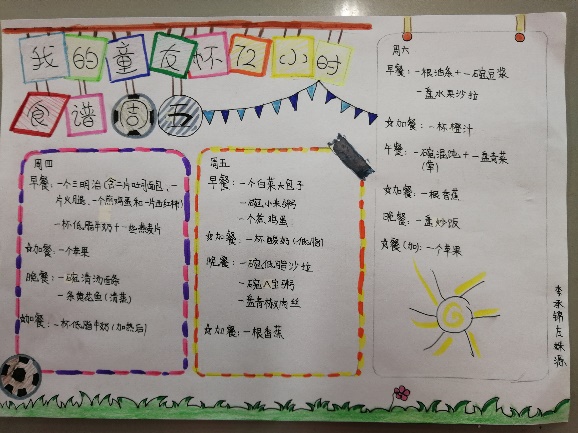 我的童友怀72小时
食谱周五
周四
早餐:一个三明治(含二片吐司面包、一
片火腿、一个煎鸡蛋和一片西红柿)
一杯低脂牛奶+一些燕麦片
☆加餐:一个苹果
晚餐:一碗清汤面条
一条黄花鱼(清蒸)
☆加餐:一杯低脂牛奶(加热后)
周五
早餐:一个白菜大包子
一碗小米粥
一个煮鸡蛋
☆加餐:一杯酸奶(低脂)
晚餐:一碗低脂沙拉
一碗八宝粥
一盘青椒肉丝
☆加餐:一根香蕉
周六
早餐:一根油条+一碗豆浆
一盘水果沙拉
☆加餐:一杯橙汁
午餐:一碗混饨+一盘青菜
☆加餐:一根香蕉
晚餐:一盘炒饭
☆加餐(加):一个苹果